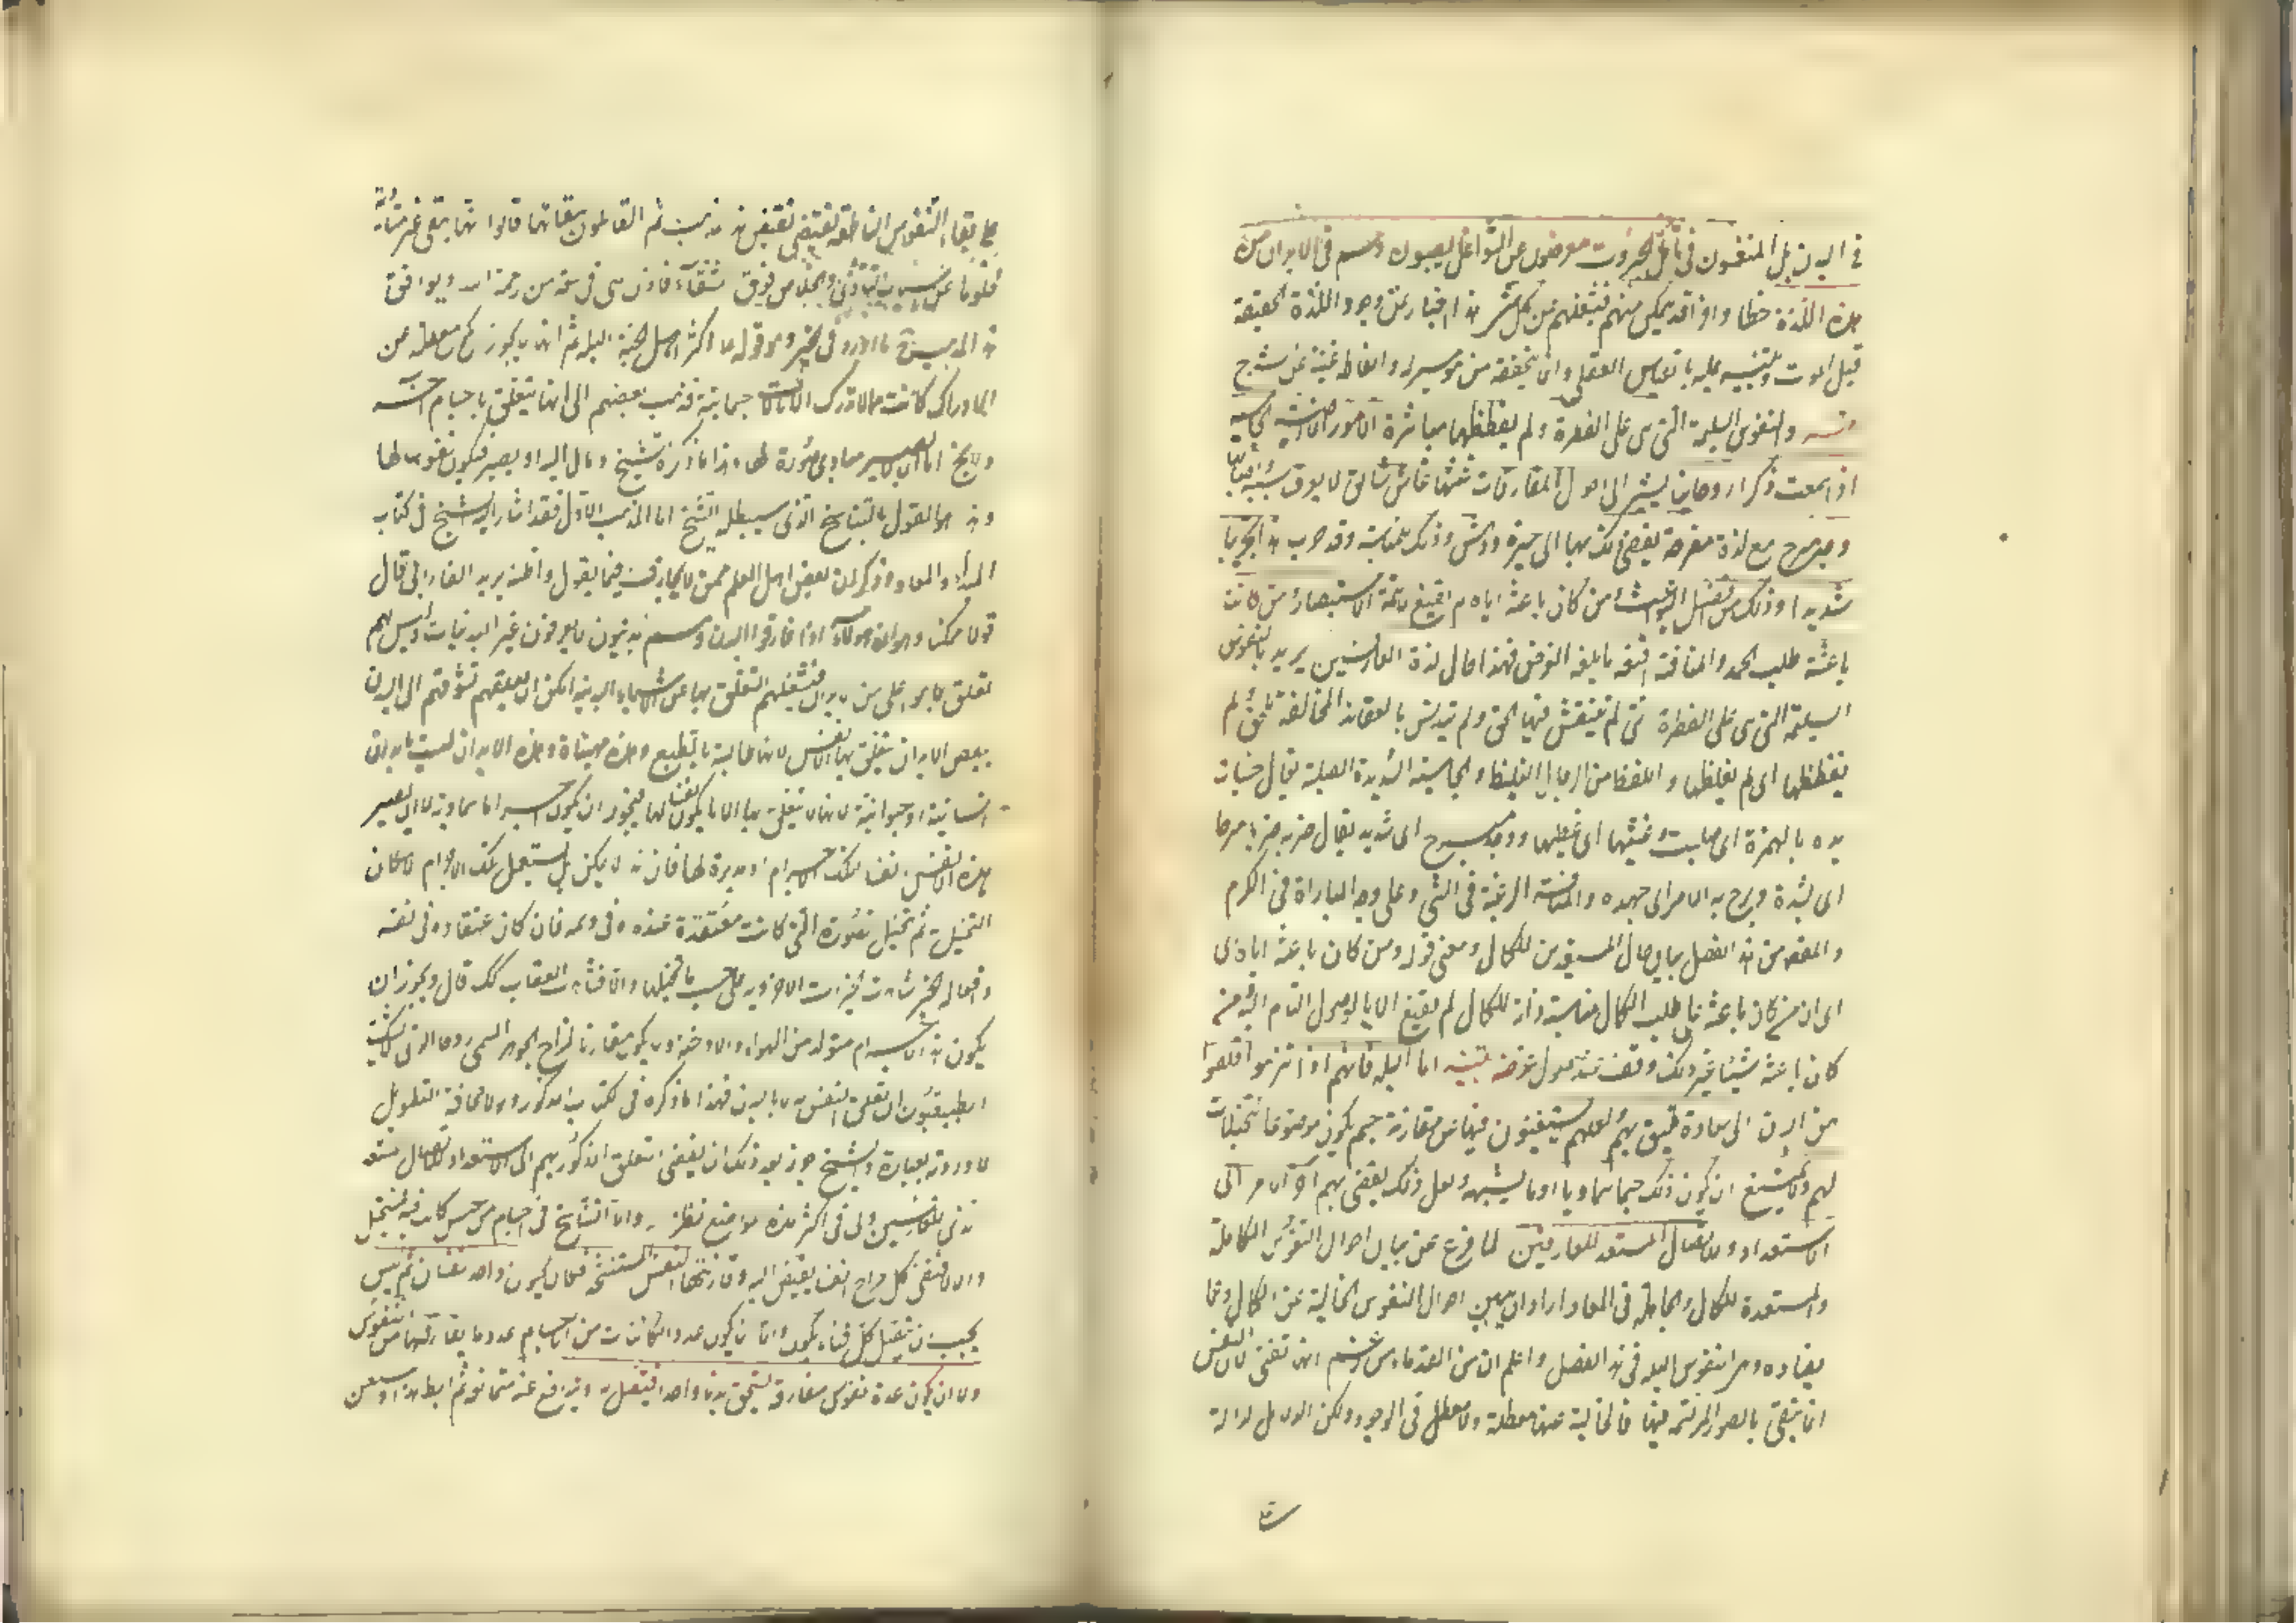 في البدن بل المنغمسون في تأمل الجبروت معرضون عن الشواغل يصيبون وهم في الابدان من
هذه اللذة حظا وافرا قد يتمكن منهم فيشغلهم عن كل شئ هذا اخبار عن وجود اللذة الحقيقية
قبل الموت وتنبيه عليه بالقياس العقلي وانما يتحققه من هو ميسر له والفاظه غنية عن الشرح
تنبيه والنفوس السليمة التي هي على الفطرة ولم يفظظها مباشرة الامور الارضية الجاسية
اذا سمعت ذكرا روحانيا يشير الى احوال المفارقات غشيها غاش شائق لا يعرف سببه واصابها
وجد مبرح مع لذة مفرحة يفضي ذلك بها الى حيرة ودهش وذلك للمناسبة وقد جرب هذا تجريبا
شديدا وذلك من افضل البواعث ومن كان باعثه اياه لم يقنع الا بتتمة الاستبصار ومن كانت
باعثه طلب الحمد والمنافسة اقنعه ما بلغه الغرض فهذا حال لذة العارفين يريد بالنفوس
السليمة التي هي على الفطرة التي لم ينتقش فيها الحق ولم يتدنس بالعقائد المخالفة للحق ولم
يفظظها اى لم يغلظها والفظ من الرجال الغليظ والجاسية الشديدة الصلبة يقال جسأت
يده بالهمزة اى صلبت وغشيها اى غطيها ووجد مبرح اى شديد يقال ضربه ضربا مبرحا
اى بشدة وبرح به الامر اى جهده والمنافسة الرغبة في الشئ على وجه المباراة في الكرم
والمقصود من هذا الفصل بيان حال المستعدين للكمال ومعنى قوله ومن كان باعثه اياه اى
اى ان من كان باعثه على طلب الكمال مناسبة ذاته للكمال لم يقنع الا بالوصول التام اليه ومن
كان باعثه شيئا غير ذلك وقف عند حصول غرضه تنبيه اما البله فانهم اذا تنزهوا خلصوا
من البدن الى سعادة تليق بهم ولعلهم لا يستغنون فيها عن مقارنة جسم يكون موضوعا لتخيلات
لهم ولا يمتنع ان يكون ذلك جسما سماويا او ما يشبهه ولعل ذلك يفضي بهم آخر الامر الى
الاستعداد للاتصال المستعد للعارفين لما فرغ عن بيان احوال النفوس الكاملة
والمستعدة للكمال والجاهلة في المعاد اراد ان يبين احوال النفوس الخالية عن الكمال وعما
يضاده وهي نفوس البله في هذا الفصل واعلم ان من القدماء من زعم انها تفنى لان النفس
انما تبقى بالصور المرتسمة فيها فالخالية عنها معطلة ولا معطل في الوجود ولكن الدلائل الدالة
على بقاء النفوس الناطقة تقتضي نقيض هذا المذهب ثم القائلون ببقائها قالوا انها تبقى غير متأذية
لخلوها عن اسباب التأذي والخلاص فوق الشقاء فاذن هي في سعة من رحمة الله ويوافق
هذا المذهب ما ورد في الخبر وهو قوله ع اكثر اهل الجنة البله ثم انها لا يجوز ان يكون معطلة عن
الادراك وكانت مما لا تدرك الا بالآلات جسمانية فذهب بعضهم الى انها يتعلق باجسام اخر
ولا يخ اما ان لا يصير مبادى صورة لها وهذا ما ذكره الشيخ ومال اليه او يصير فيكون نفوسا لها
وهذا هو القول بالتناسخ الذي سيبطله الشيخ اما المذهب الاول فقد اشار اليه الشيخ في كتاب
المبدأ والمعاد وذكر ان بعض اهل العلم ممن لا يجازف فيما يقول واظنه يريد الفارابي قال
قولا ممكنا وهو ان هؤلاء اذا فارقوا البدن وهم بدنيون لا يعرفون غير البدنيات وليس لهم
تعلق بما هو اعلى من الابدان فيشغلهم التعلق بها عن الاشياء البدنية امكن ان يعلقهم تشوقهم الى البدن
ببعض الابدان التي يتعلق بها الانفس لانها طالبة بالطبع وهذه مهيأة وهذه الابدان ليست بابدان
انسانية او حيوانية لانها لا يتعلق بها الا ما يكون نفسا لها فيجوز ان يكون اجراما سماوية لا ان يصير
هذه الانفس انفسا لتلك الاجرام او مدبرة لها فان هذا لا يمكن بل يستعمل تلك الاجرام لامكان
التخيل ثم تتخيل الصورة التي كانت معتقدة عنده وفي وهمه فان كان اعتقاده في نفسه
وافعاله الخير شاهدت الخيرات الاخروية على حسب ما تخيلها والا فشاهدت العقاب كذلك قال ويجوز ان
يكون هذه الاجرام متولدة من الهواء والادخنة ويكون مقارنا لمزاج الجوهر المسمى روحا الذي لا يشك
الطبيعيون ان تعلق النفس به لا بالبدن فهذا ما ذكره في الكتاب المذكور ولولا مخافة التطويل
لاوردته بعبارة والشيخ جوز بعد ذلك ان يفضي التعلق المذكور بهم الى الاستعداد للاتصال المستعد
الذي للعارفين ولى في اكثر هذه المواضع نظر واما التناسخ في اجسام من جنس ما كانت فيه فمستحيل
والا لاقتضى كل مزاج نفسا يفيض اليه وقارنتها النفس المستنسخة فكان لحيوان واحد نفسان ثم ليس
يجب ان يتصل كل فناء بكون ولا ان يكون عدد الكائنات من الاجسام عدد ما يفارقها من النفوس
ولا ان يكون عدة نفوس مفارقة يستحق بدنا واحدا فيتصل به او يتدافع عنه متمانعة ثم ابسط هذا واستعن